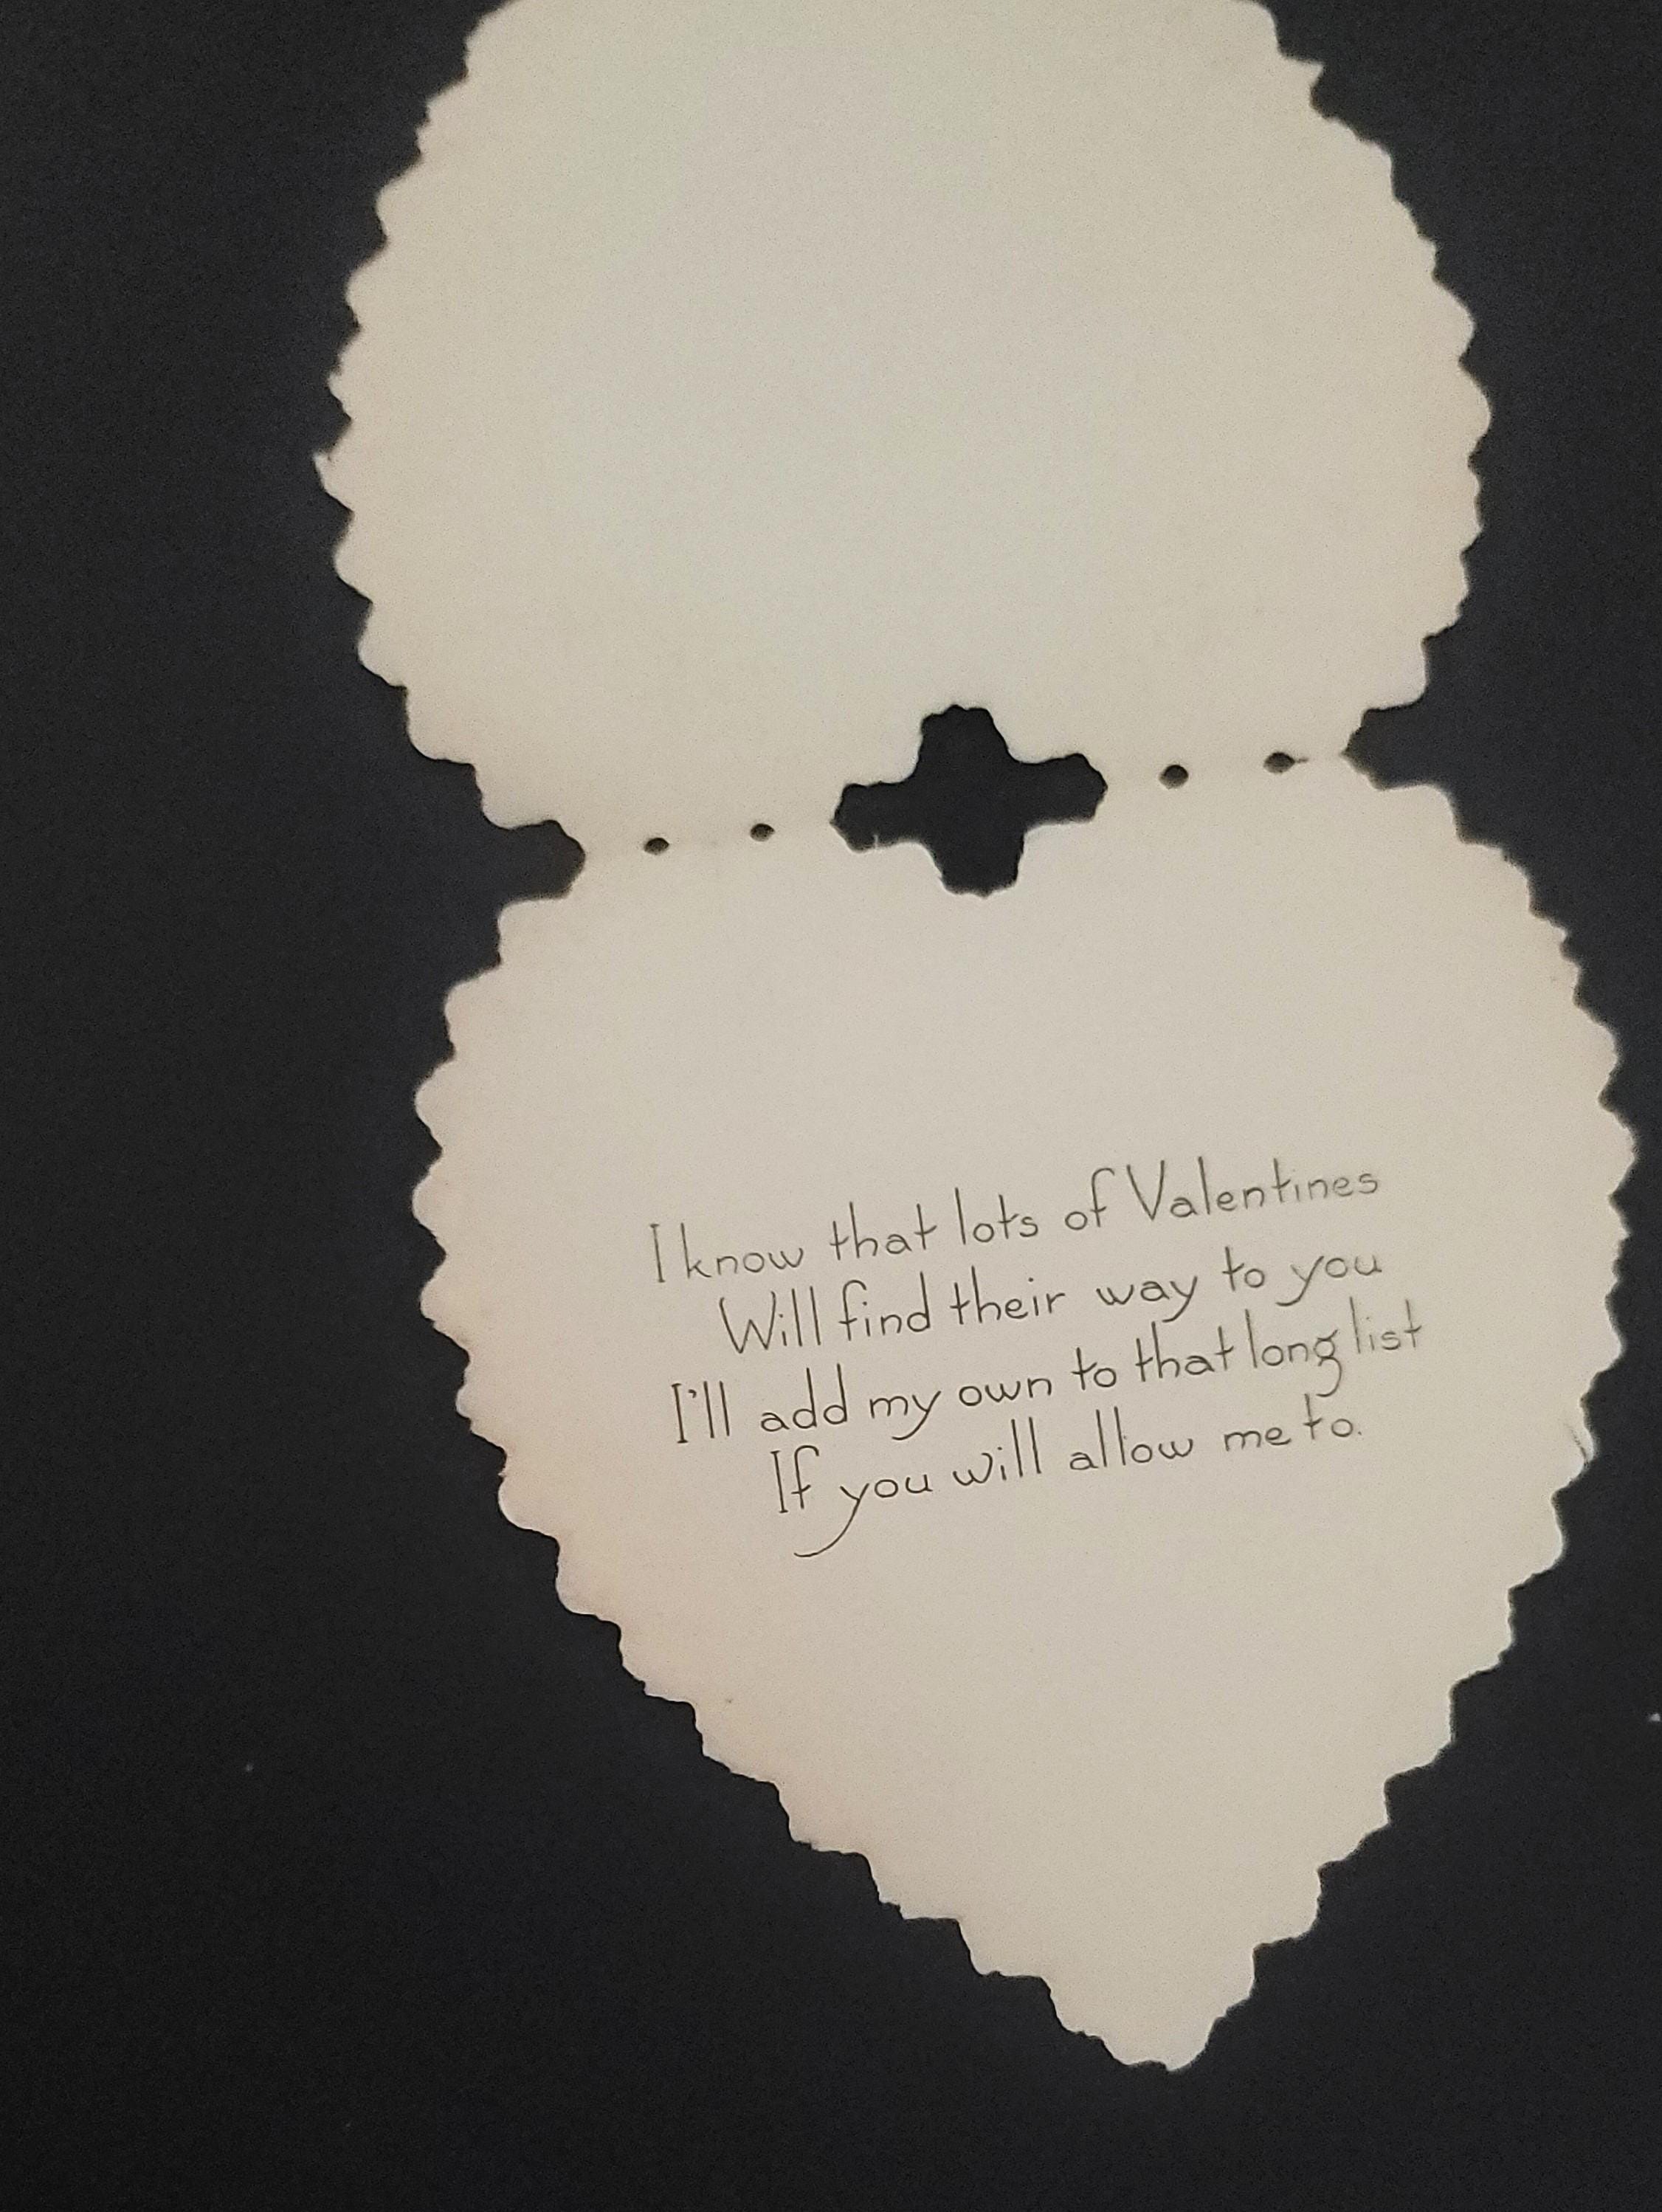 I know that lots of Valentines
Will find their way to you
I'll add my own to that long list
If you will allow me to.